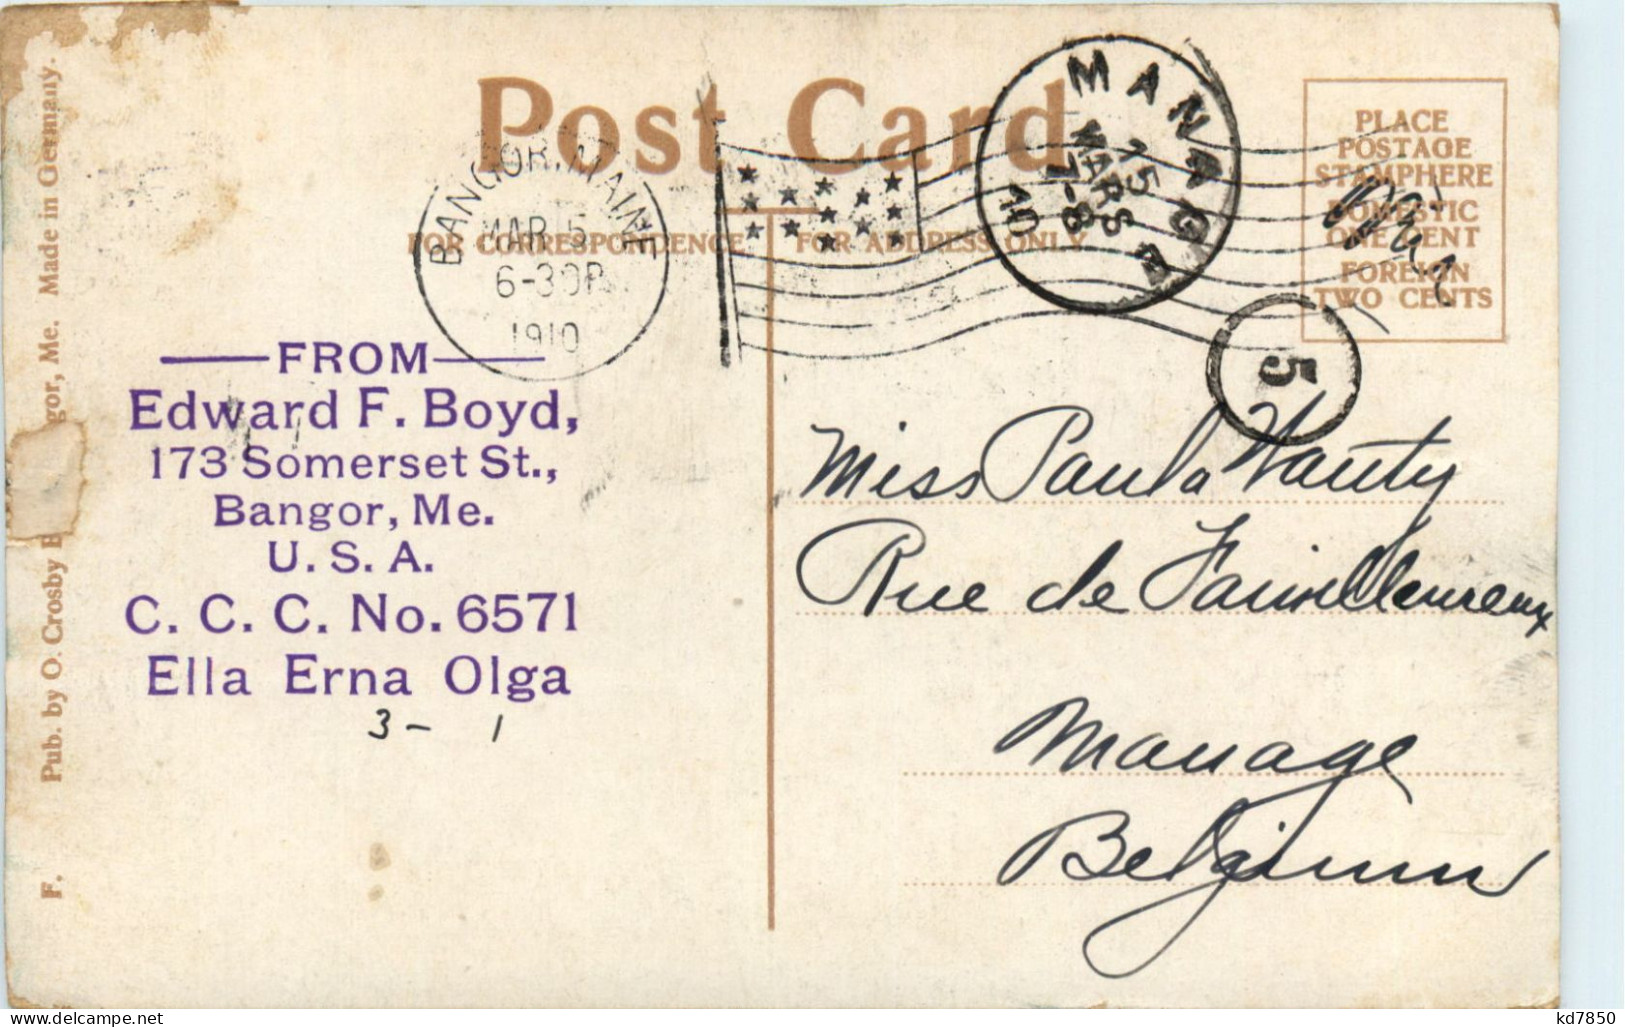 Post Card
FOR CORRESPONDENCE
FOR ADDRESS ONLY
PLACE
POSTAGE
STAMP HERE
DOMESTIC
ONE CENT
FOREIGN
TWO CENTS
BANGOR, MAINE
MAR 5
6-30P
1910
MANAGE
15
MARS
7-8
10
5
FROM
Edward F. Boyd,
173 Somerset St.,
Bangor, Me.
U. S. A.
C. C. C. No. 6571
Ella Erna Olga
3 - 1
Miss Paula Wauty
Rue de
Manage
Belgium
F. Pub. by O. Crosby gor, Me. Made in Germany.
kd7850